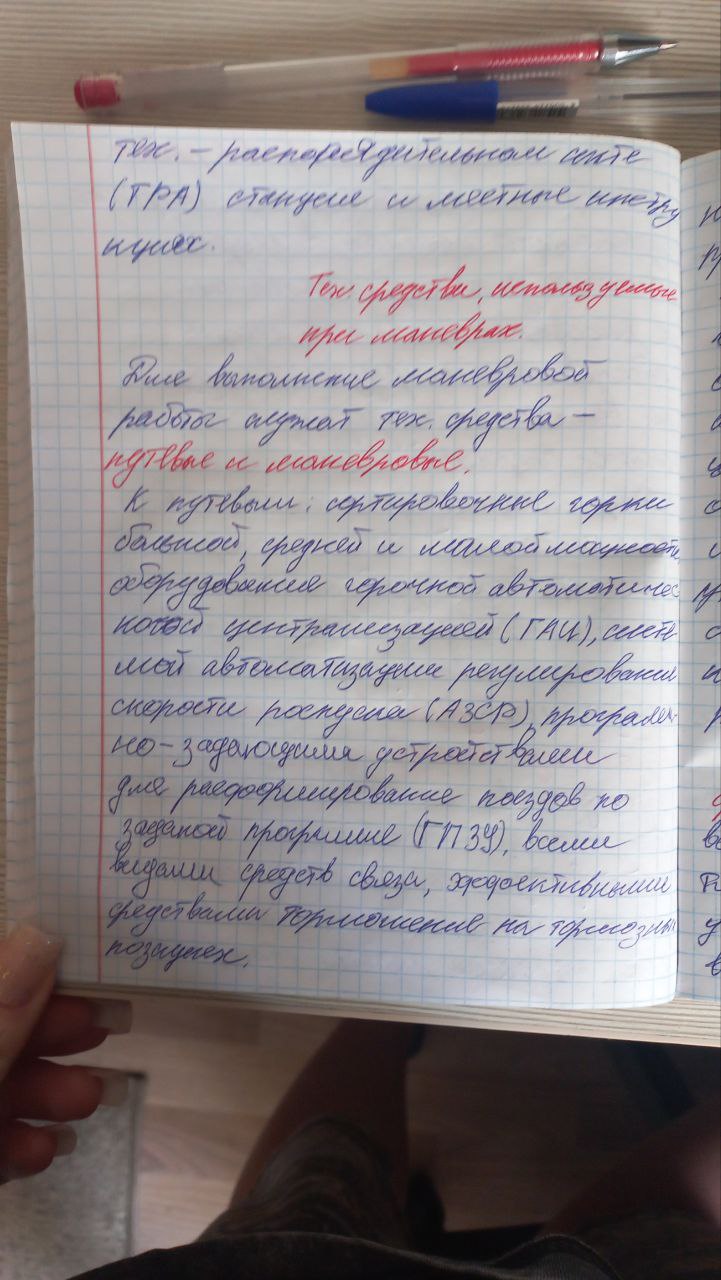 тех. – распорядительном акте
(ТРА) станции и местные инстру
кциях.
Тех. средства, используемые
при маневрах.
Для выполнение маневровой
работы служат тех. средства –
путевые и маневровые.
К путевым: сортировочные горки
большой, средней и малой мощности,
оборудования горочной автоматичес
кой централизацией (ГАЦ), систе
мой автоматизации регулирования
скорости роспуска (АЗСР), программ
но-задающими устройствами
для расформирование поездов по
заданой программе (ГПЗУ), всеми
видами средств связи, эффективными
средствами торможение на тормозных
позициях.